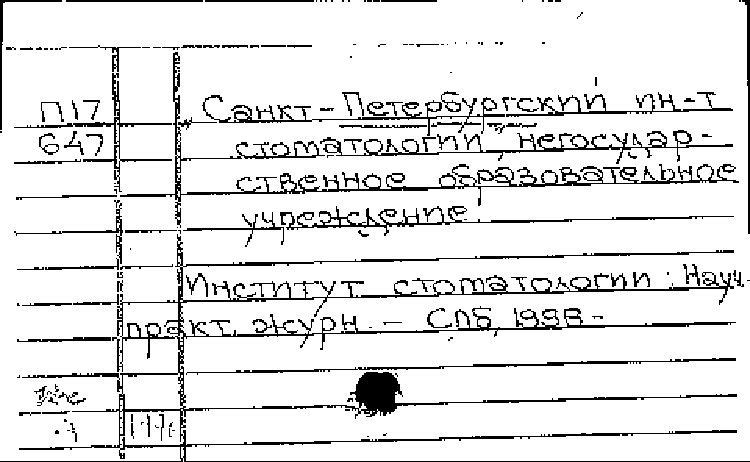 П17 Санкт-Петербургский ин-т
647 стоматологии, негосудар-
ственное образовательное
учреждение.
Институт стоматологии: Науч.-
практ. журн. - СПб, 1998-